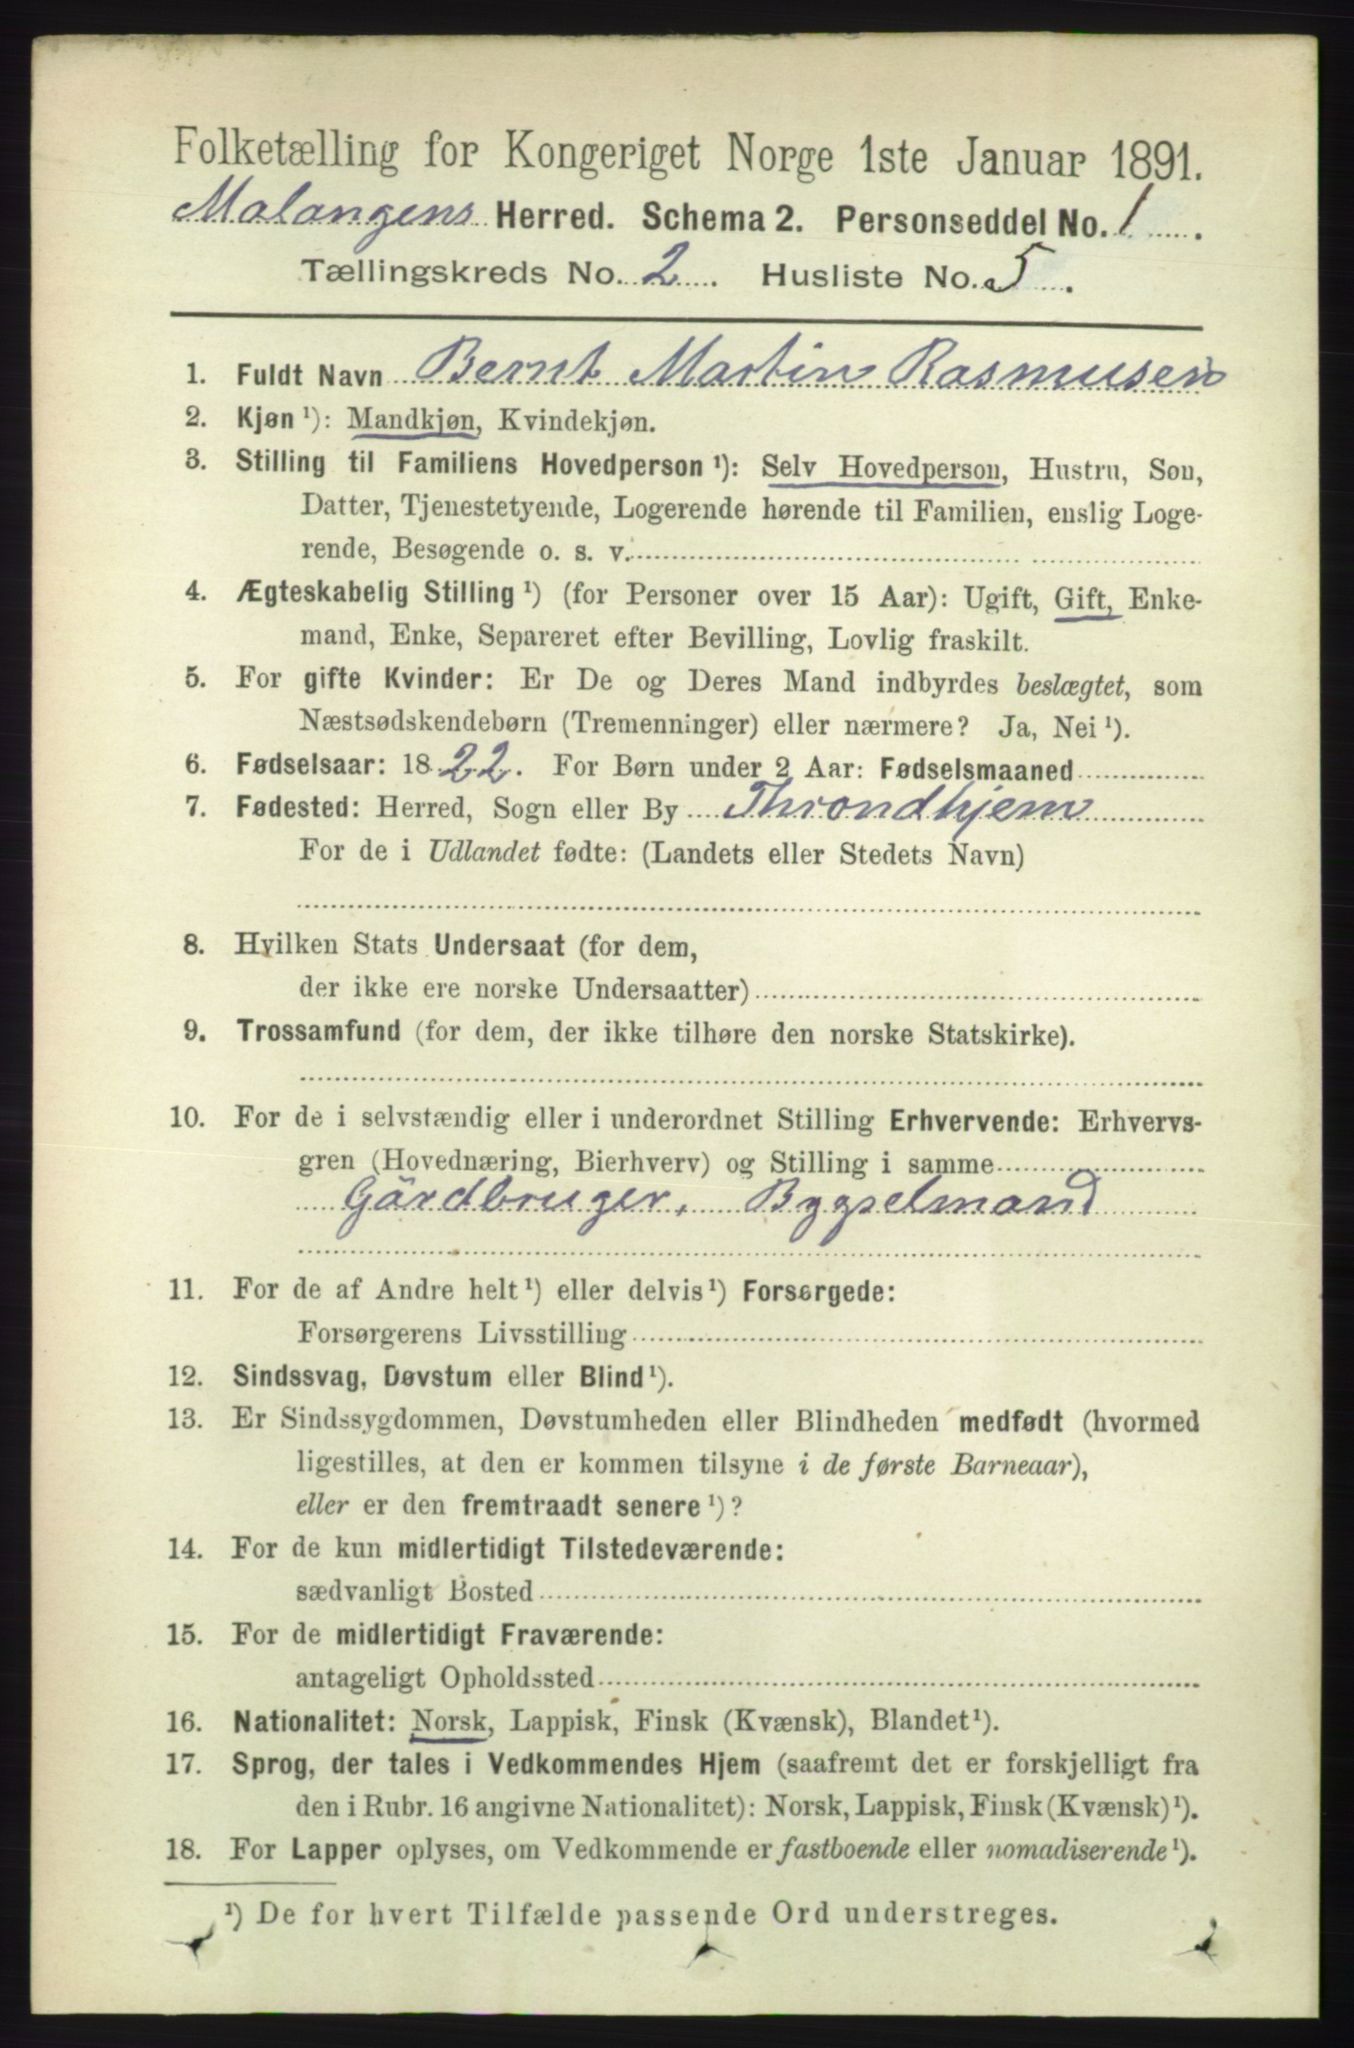 Folketælling for Kongeriget Norge 1ste Januar 1891.
Malangens Herred. Schema 2. Personseddel No. 1.
Tællingskreds No. 2. Husliste No. 5.
1. Fuldt Navn Bernt Martin Rasmusen
2. Kjøn ¹): Mandkjøn, Kvindekjøn.
3. Stilling til Familiens Hovedperson ¹): Selv Hovedperson, Hustru, Søn,
Datter, Tjenestetyende, Logerende hørende til Familien, enslig Loge-
rende, Besøgende o. s. v.
4. Ægteskabelig Stilling ¹) (for Personer over 15 Aar): Ugift, Gift, Enke-
mand, Enke, Separeret efter Bevilling, Lovlig fraskilt.
5. For gifte Kvinder: Er De og Deres Mand indbyrdes beslægtet, som
Næstsødskendebørn (Tremenninger) eller nærmere? Ja, Nei ¹).
6. Fødselsaar: 1822. For Børn under 2 Aar: Fødselsmaaned
7. Fødested: Herred, Sogn eller By Throndhjem
For de i Udlandet fødte: (Landets eller Stedets Navn)
8. Hvilken Stats Undersaat (for dem,
der ikke ere norske Undersaatter)
9. Trossamfund (for dem, der ikke tilhøre den norske Statskirke).
10. For de i selvstændig eller i underordnet Stilling Erhvervende: Erhvervs-
gren (Hovednæring, Bierhverv) og Stilling i samme
Gårdbruger, Bygselmand
11. For de af Andre helt ¹) eller delvis ¹) Forsørgede:
Forsørgerens Livsstilling
12. Sindssvag, Døvstum eller Blind ¹).
13. Er Sindssygdommen, Døvstumheden eller Blindheden medfødt (hvormed
ligestilles, at den er kommen tilsyne i de første Barneaar),
eller er den fremtraadt senere ¹)?
14. For de kun midlertidigt Tilstedeværende:
sædvanligt Bosted
15. For de midlertidigt Fraværende:
antageligt Opholdssted
16. Nationalitet: Norsk, Lappisk, Finsk (Kvænsk), Blandet ¹).
17. Sprog, der tales i Vedkommendes Hjem (saafremt det er forskjelligt fra
den i Rubr. 16 angivne Nationalitet): Norsk, Lappisk, Finsk (Kvænsk) ¹).
18. For Lapper oplyses, om Vedkommende er fastboende eller nomadiserende ¹).
¹) De for hvert Tilfælde passende Ord understreges.